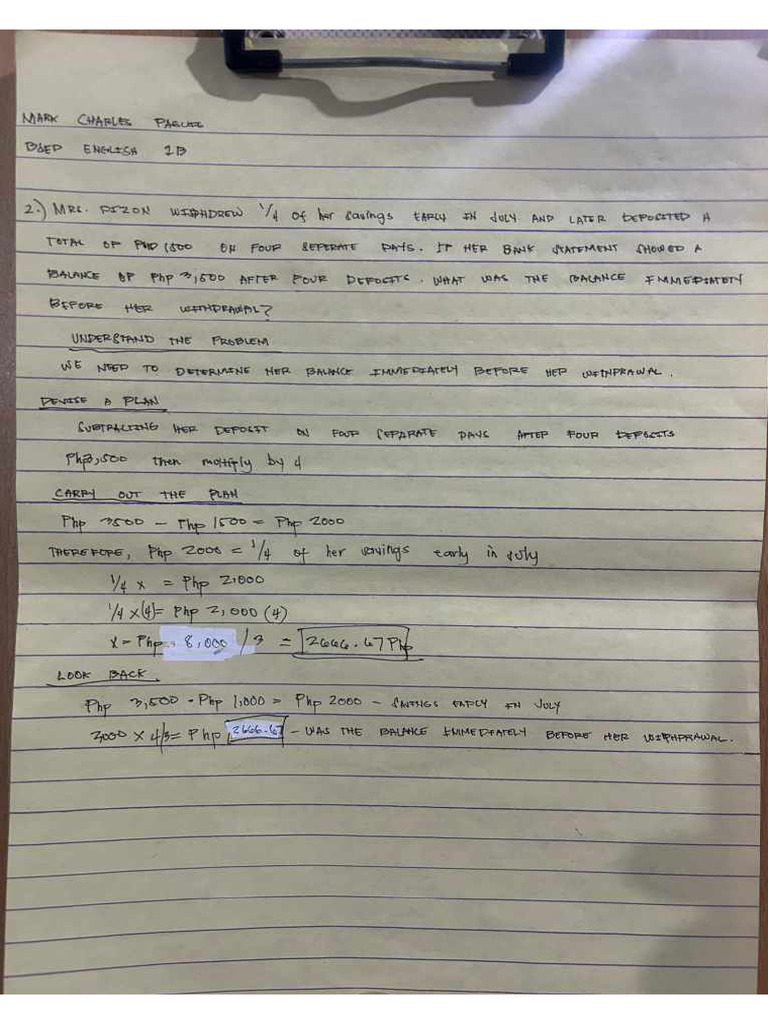 MARK CHARLES
BSED ENGLISH 1B
2.) MRS. DIZON WITHDREW 1/4 of her savings EARLY IN JULY AND LATER DEPOSITED A
TOTAL OF PHP 1500 ON FOUR SEPERATE DAYS. IF HER BANK STATEMENT SHOWED A
BALANCE OF Php 3,500 AFTER FOUR DEPOSITS. WHAT WAS THE BALANCE IMMEDIATELY
BEFORE HER WITHDRAWAL?
UNDERSTAND THE PROBLEM
WE NEED TO DETERMINE HER BALANCE IMMEDIATELY BEFORE HER WITHDRAWAL.
DEVISE A PLAN
SUBTRACTING HER DEPOSIT ON FOUR SEPARATE DAYS AFTER FOUR DEPOSITS
Php3,500 then moltiply by 4
CARRY OUT THE PLAN
Php 3500 - Php 1500 = Php 2000
THEREFORE, Php 2000 = 1/4 of her savings early in July
1/4 x = Php 2,000
1/4 x(4)= Php 2,000 (4)
x = Php 8,000 / 3 = 2666.67 Php
LOOK BACK.
Php 3,500 - Php 1,000 = Php 2000 - SAVINGS EARLY IN JULY
2,000 X 4/3= Php 2666.67 - WAS THE BALANCE IMMEDIATELY BEFORE HER WITHDRAWAL.